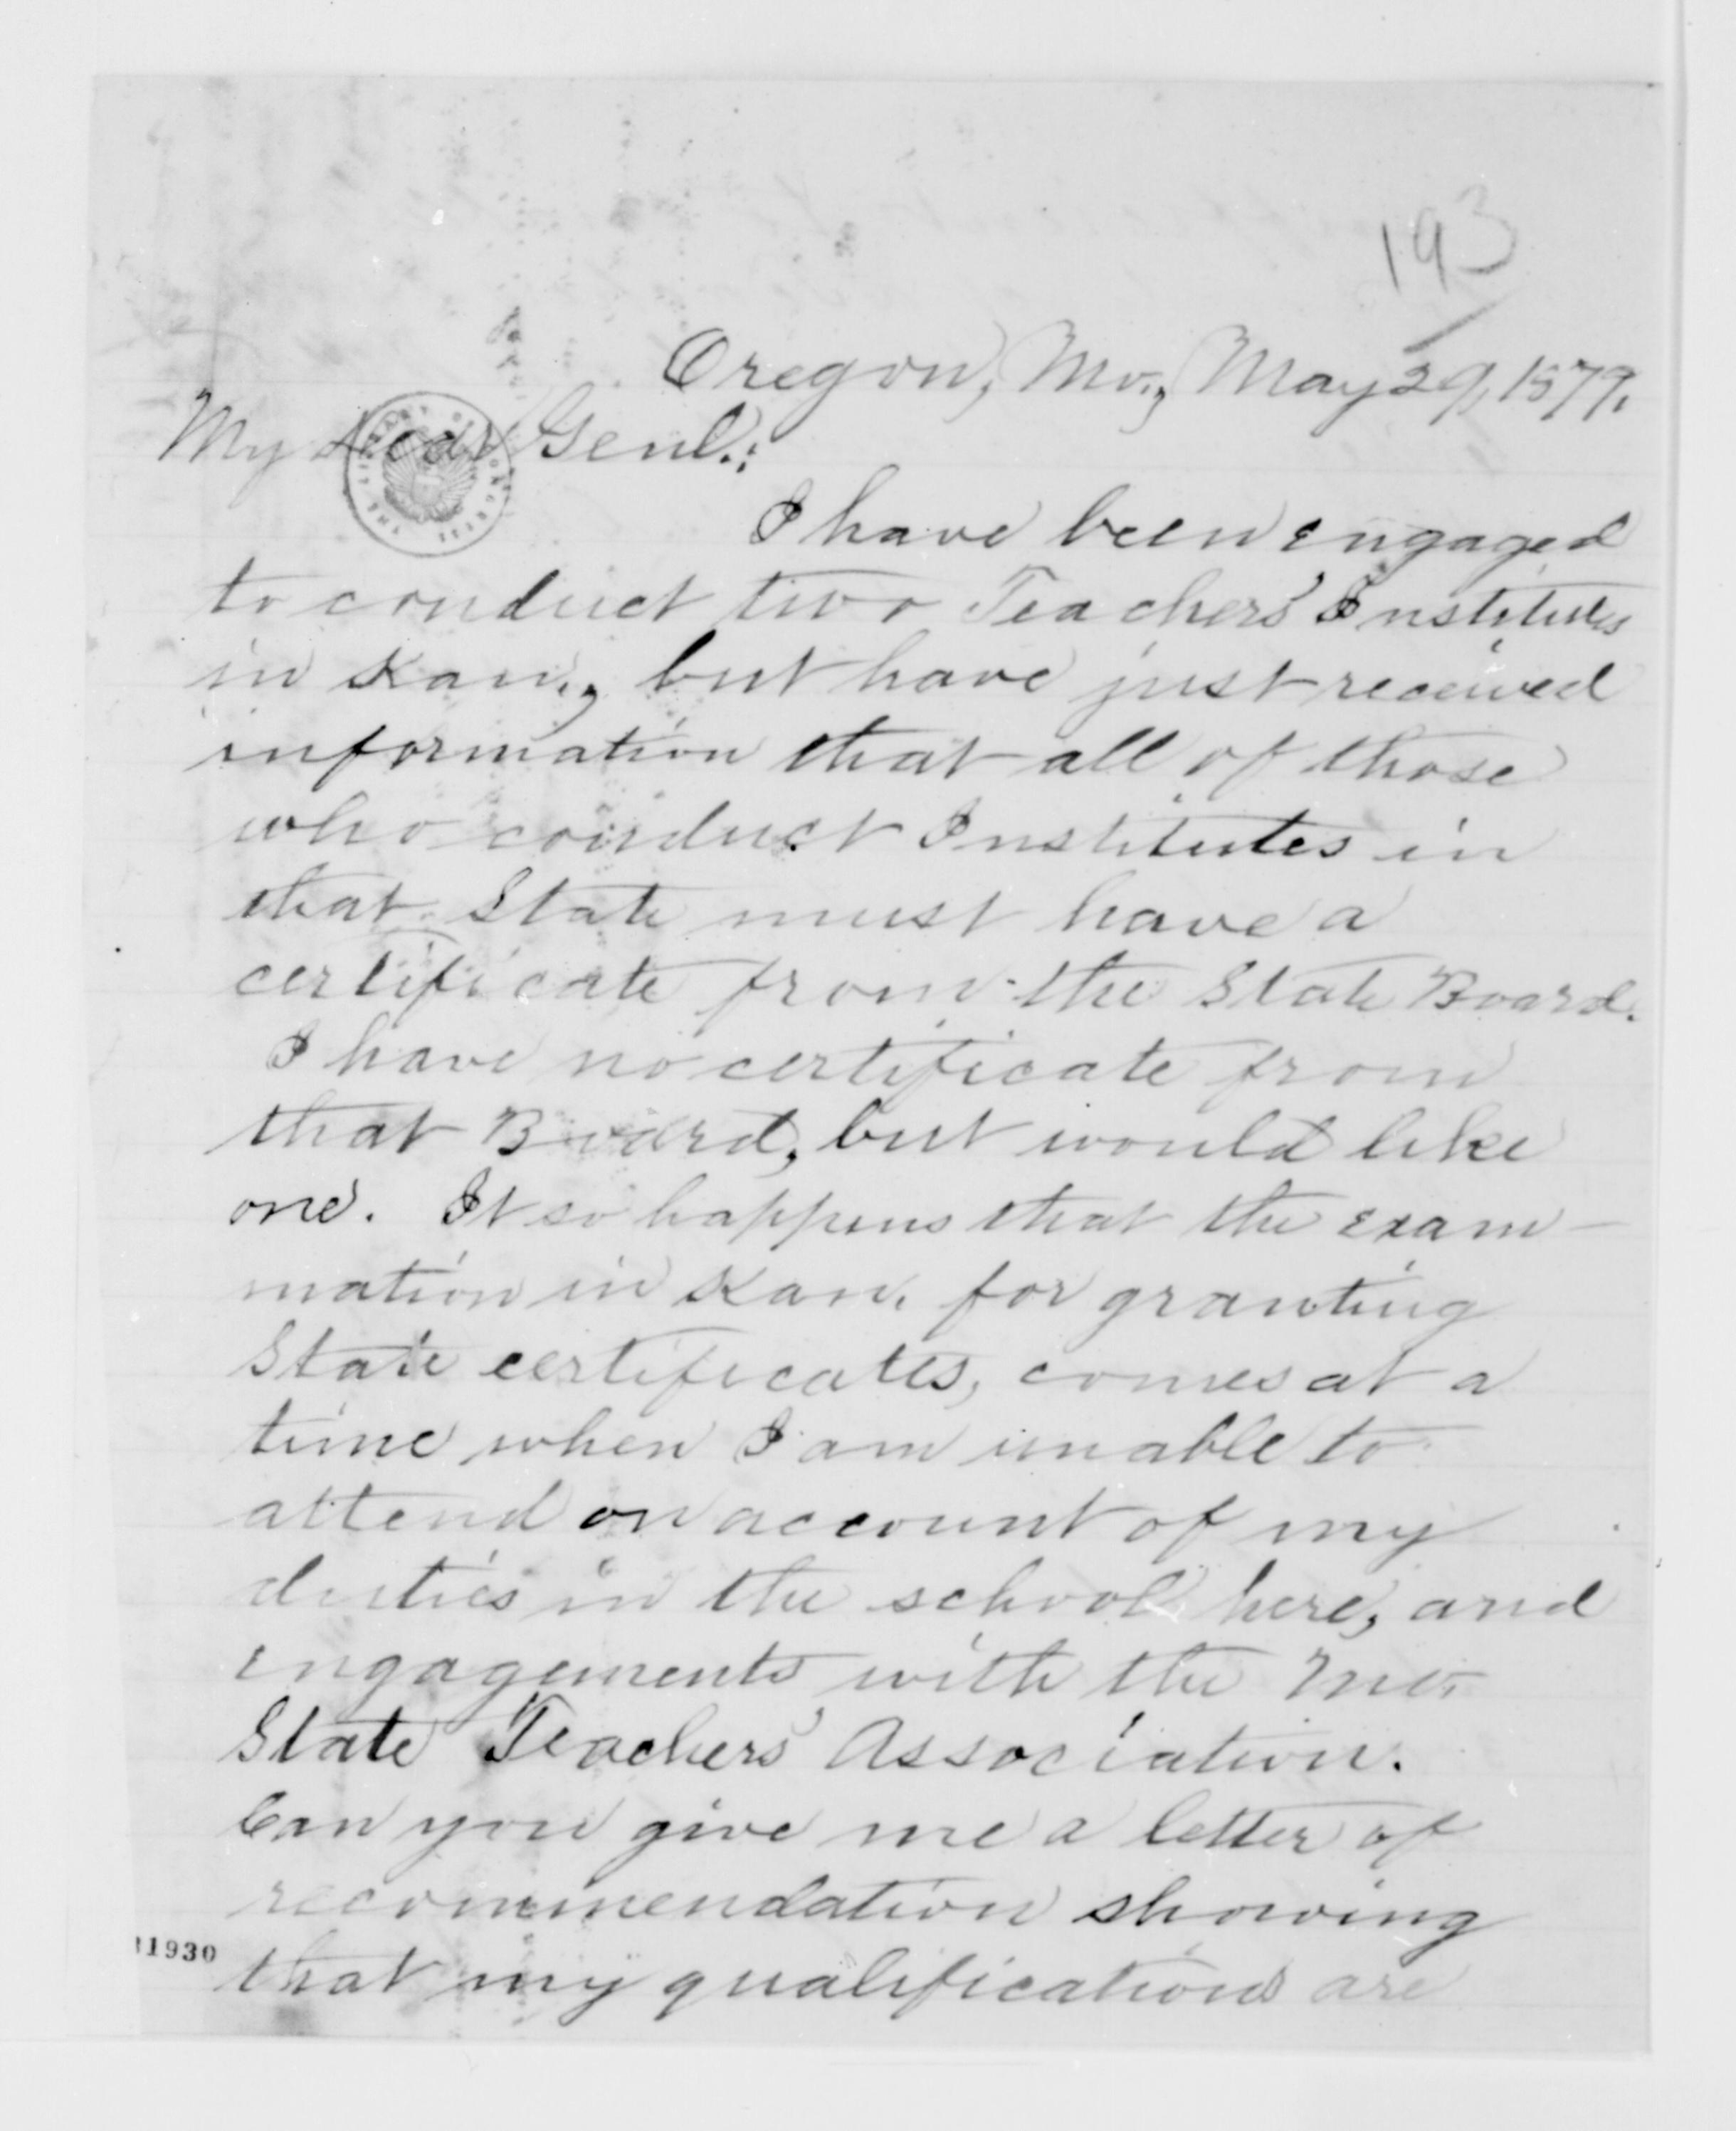 193
Oregon, Mo., May 29, 1879.
My dear Genl.:
I have been engaged
to conduct two Teachers' Institutes
in Kan., but have just received
information that all of those
who conduct Institutes in
that State must have a
certificate from the State Board.
I have no certificate from
that Board, but would like
one. It so happens that the exam-
mation in Kan. for granting
State certificates, comes at a
time when I am unable to
attend on account of my
duties in the school here, and
engagements with the Mo.
State Teachers' Association.
Can you give me a letter of
recommendation showing
11930
that my qualifications are